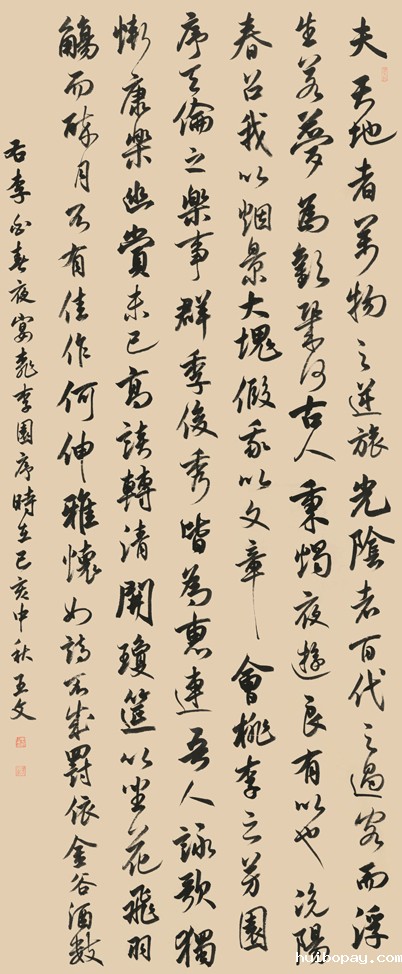 夫天地者萬物之逆旅光陰者百代之過客而浮
生若夢為歡幾何古人秉燭夜遊良有以也況陽
春召我以烟景大塊假我以文章會桃李之芳園
序天倫之樂事群季俊秀皆為惠連吾人詠歌獨
慚康樂幽賞未已高談轉清開瓊筵以坐花飛羽
觴而醉月不有佳作何伸雅懷如詩不成罰依金谷酒數
右李白春夜宴桃李園序時在己亥中秋
huibopay.com